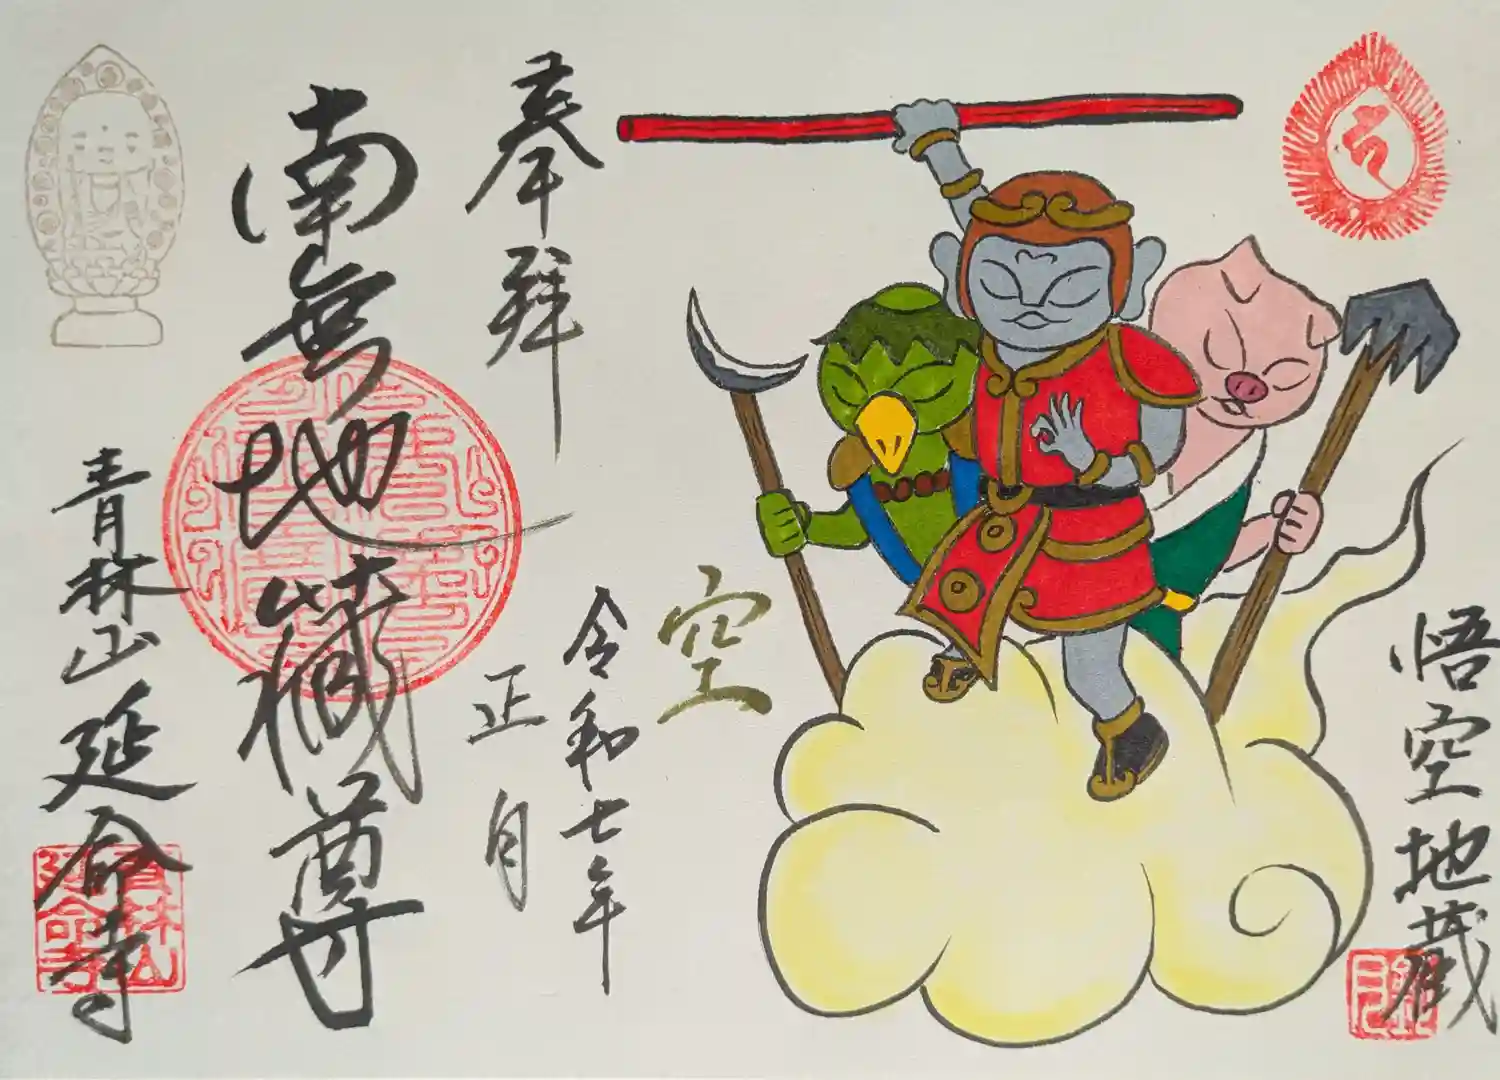 悟空地蔵
空
奉拝
令和七年
正月
南無地蔵尊
青林山延命寺
青林山
延命寺